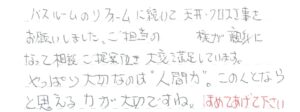 バスルームのリフォームに続いて天井・クロス工事を
お願いしました。ご担当の 様が親身に
なって相談ご提案頂き大変満足しています。
やっぱり大切なのは"人間力"。この人となら
と思える力が大切ですね。ほめてあげて下さい